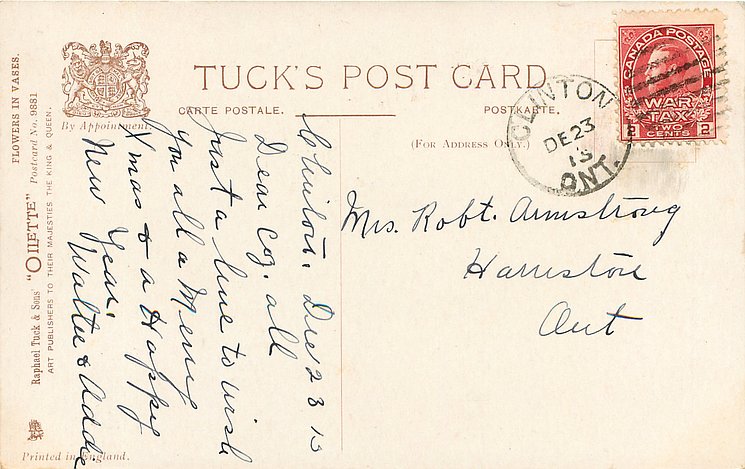 FLOWERS IN VASES.
Raphael Tuck & Sons' "OILETTE" Postcard No. 9881
ART PUBLISHERS TO THEIR MAJESTIES THE KING & QUEEN.
By Appointment.
TUCK'S POST CARD
CARTE POSTALE.
POSTKARTE.
(FOR ADDRESS ONLY.)
CANADA POSTAGE
WAR
TAX
2 TWO CENTS 2
CLINTON
DE 23
15
ONT.
Clinton, Dec 23 15
Dear Coz. all
Just a line to wish
you all a Merry
Xmas & a Happy
New Year.
Walter & Addie
Mrs. Robt. Armstrong
Harriston
Ont
Printed in England.